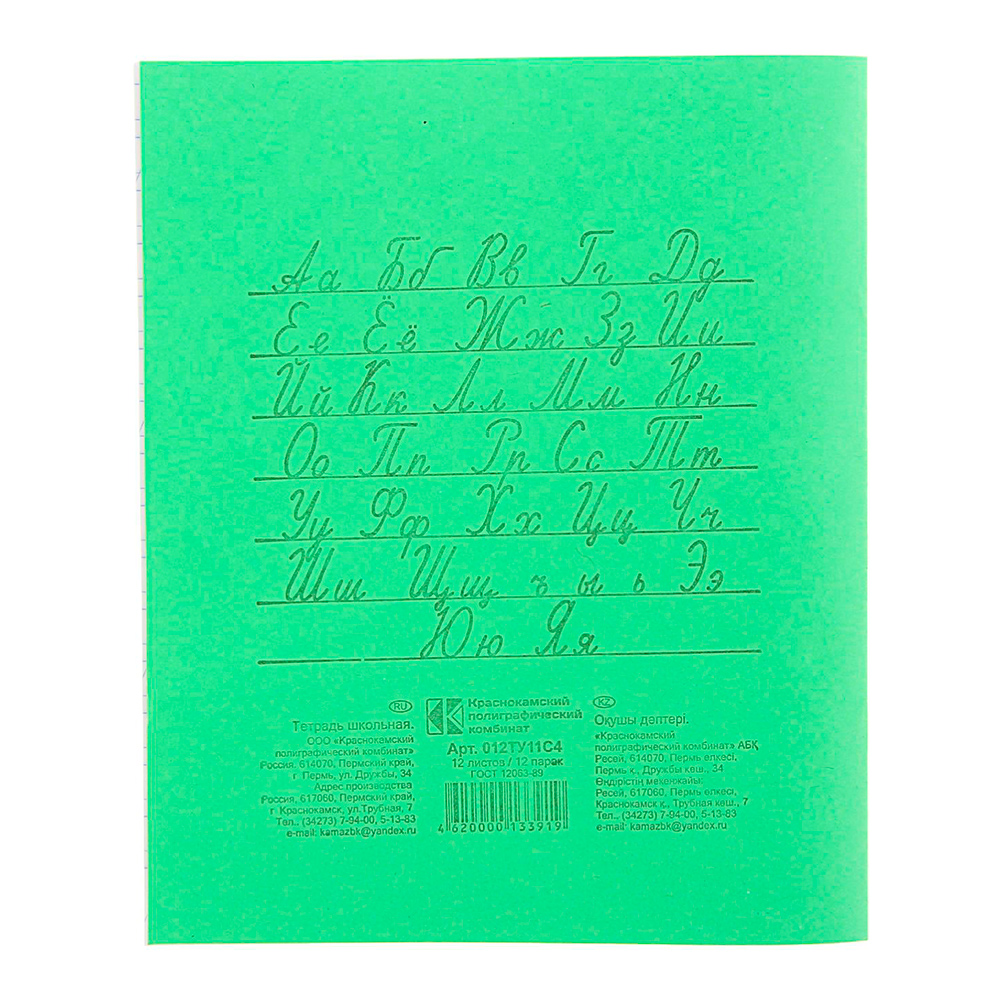 Аа Бб Вв Гг Дд
Ее Ёё Жж Зз Ии
Йй Кк Лл Мм Нн
Оо Пп Рр Сс Тт
Уу Фф Хх Цц Чч
Шш Щщ ъ ы ь Ээ
Юю Яя
RU
Тетрадь школьная.
ООО «Краснокамский
полиграфический комбинат»
Россия, 614070, Пермский край,
г. Пермь, ул. Дружбы, 34
Адрес производства
Россия, 617060, Пермский край,
г. Краснокамск, ул.Трубная, 7
Тел., (34273) 7-94-00, 5-13-83
e-mail: kamazbk@yandex.ru
Краснокамский
полиграфический
комбинат
Арт. 012ТУ11С4
12 листов / 12 парак
ГОСТ 12063-89
4 620000 133919
KZ
Оқушы дептері.
«Краснокамский
полиграфический комбинат» АБҚ
Ресей, 614070, Пермь өлкесі,
Пермь қ., Дружбы көш., 34
Өндірістің мекенжайы:
Ресей, 617060, Пермь өлкесі,
Краснокамск қ., Трубная көш., 7
Тел., (34273) 7-94-00, 5-13-83
e-mail: kamazbk@yandex.ru